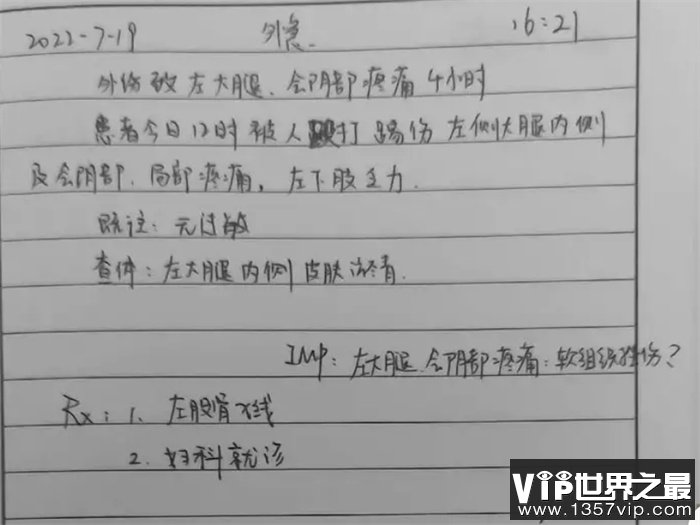 2022-7-19 外急. 16:21
外伤致左大腿、会阴部疼痛4小时
患者今日12时被人殴打踢伤左侧大腿内侧
及会阴部.局部疼痛,左下肢乏力.
既往:无过敏
查体:左大腿内侧皮肤淤青.
IMP:左大腿.会阴部疼痛:软组织挫伤?
Rx:1. 左股骨X线
2. 妇科就诊
VIP世界之最
www.1357vip.com